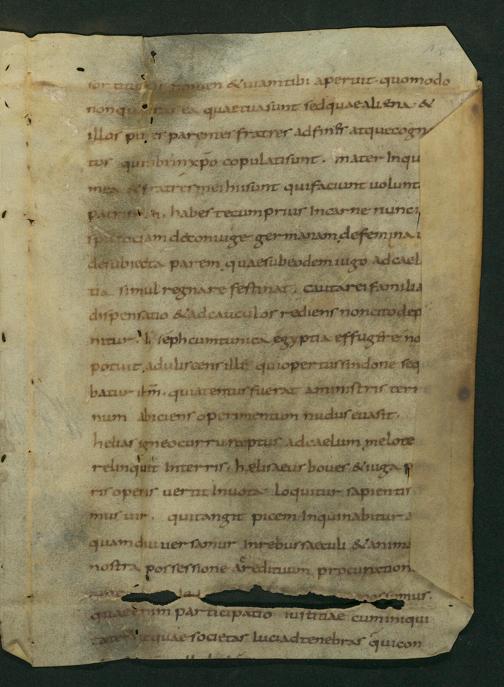 nomen & viam tibi aperuit quomodo
non quaeras ea quae tua sunt sed quae aliena &
illos putes parentes fratres adfines atque cogn
tos qui tibi in xpo copulati sunt. mater inqu
mea & fratres mei hi sunt qui faciunt volunt
patris habes tecum prius in carne nunc
de coniuge germanam de femina
de subiecta parem quae sub eodem iugo ad cael
tia simul regnare festinat. cauta rei familia
dispensatio & ad calculos rediens non cito dep
nitur. Ioseph cum tunica egyptia effugere no
potuit adulescens ille qui opertus sindone seq
batur ihm. quia tentus fuerat a ministris terr
num abiciens operimentum nudus evasit.
helias igneo curru raptus ad caelum melote
relinquit in terris. haelisaeus boves & iuga p
ris operis vertit in vota. loquitur sapientis
mus vir. qui tangit picem inquinabitur a
quamdiu versamur in rebus saeculi & anima
nostra possessione ac redituum procuration
possumus.
quae enim participatio iustitiae cum iniqui
tate aut quae societas luci ad tenebras qui con